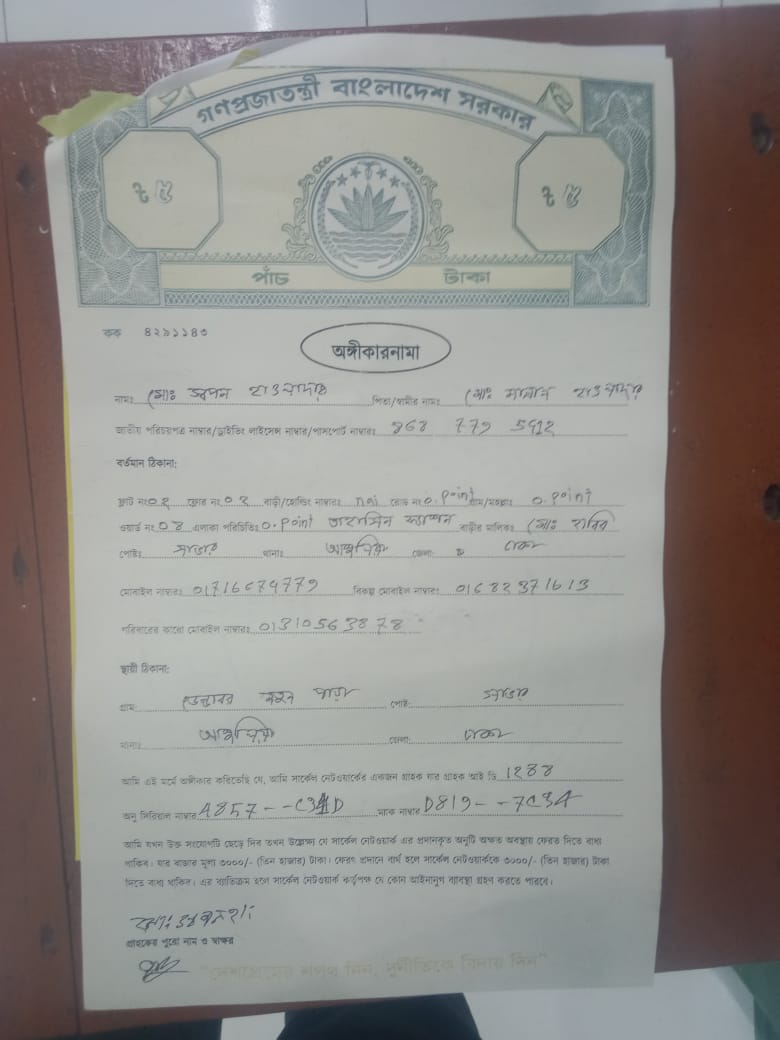 গণপ্রজাতন্ত্রী বাংলাদেশ সরকার
৳ ৫ ৳ ৫
পাঁচ টাকা
কক ৪২৯১১৪৩
অঙ্গীকারনামা
নামঃ মোঃ স্বপন হাওলাদার পিতা/স্বামীর নামঃ মোঃ হাওলাদার
জাতীয় পরিচয়পত্র নাম্বার/ড্রাইভিং লাইসেন্স নাম্বার/পাসপোর্ট নাম্বারঃ 868 779 5912
বর্তমান ঠিকানা:
ফ্লাট নং০২ ফ্লোর নং ০২ বাড়ী/হোল্ডিং নাম্বারঃ nai রোড নং 0. Point গ্রাম/মহল্লাঃ 0. point
ওয়ার্ড নং ০৪ এলাকা পরিচিতিঃ 0. Point তাহসিন ফ্যাশন বাড়ীর মালিকঃ মোঃ হাবিব
পোষ্টঃ সাভার থানাঃ আশুলিয়া জেলাঃ ঢাকা
মোবাইল নাম্বারঃ 01716674779 বিকল্প মোবাইল নাম্বারঃ 01682371613
পরিবারের কারো মোবাইল নাম্বারঃ 01310563878
স্থায়ী ঠিকানা:
গ্রাম: পাড়া পোষ্ট: সাভার
থানাঃ আশুলিয়া জেলা: ঢাকা
আমি এই মর্মে অঙ্গীকার করিতেছি যে, আমি সার্কেল নেটওয়ার্কের একজন গ্রাহক যার গ্রাহক আই ডি 1288
অনু সিরিয়াল নাম্বার A857--C34D ম্যাক নাম্বার D819--7C34
আমি যখন উক্ত সংযোগটি ছেড়ে দিব তখন উল্লেক্ষ্য যে সার্কেল নেটওয়ার্ক এর প্রদানকৃত অনুটি অক্ষত অবস্থায় ফেরত দিতে বাধ্য
থাকিব। যার বাজার মূল্য ৩০০০/- (তিন হাজার) টাকা। ফেরৎ প্রদানে ব্যর্থ হলে সার্কেল নেটওয়ার্ককে ৩০০০/- (তিন হাজার) টাকা
দিতে বাধ্য থাকিব। এর ব্যতিক্রম হলে সার্কেল নেটওয়ার্ক কর্তৃপক্ষ যে কোন আইনানুগ ব্যবস্থা গ্রহণ করতে পারবে।
গ্রাহকের পুরো নাম ও স্বাক্ষর
"দেশপ্রেমের শপথ নিন, দুর্নীতিকে বিদায় দিন"